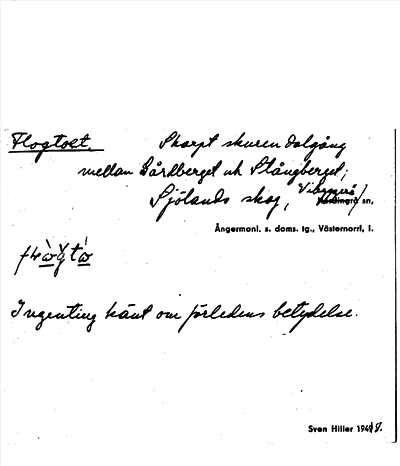 Flogtoet. Skarpt skuren dalgång
mellan Gårdberget och Stångberget;
Sjölands skog, Vibyggerå sn,
Ångermanl. s. doms. tg., Västernorrl. l.
Ingenting känt om förledens betydelse.
Sven Hiller 1948.